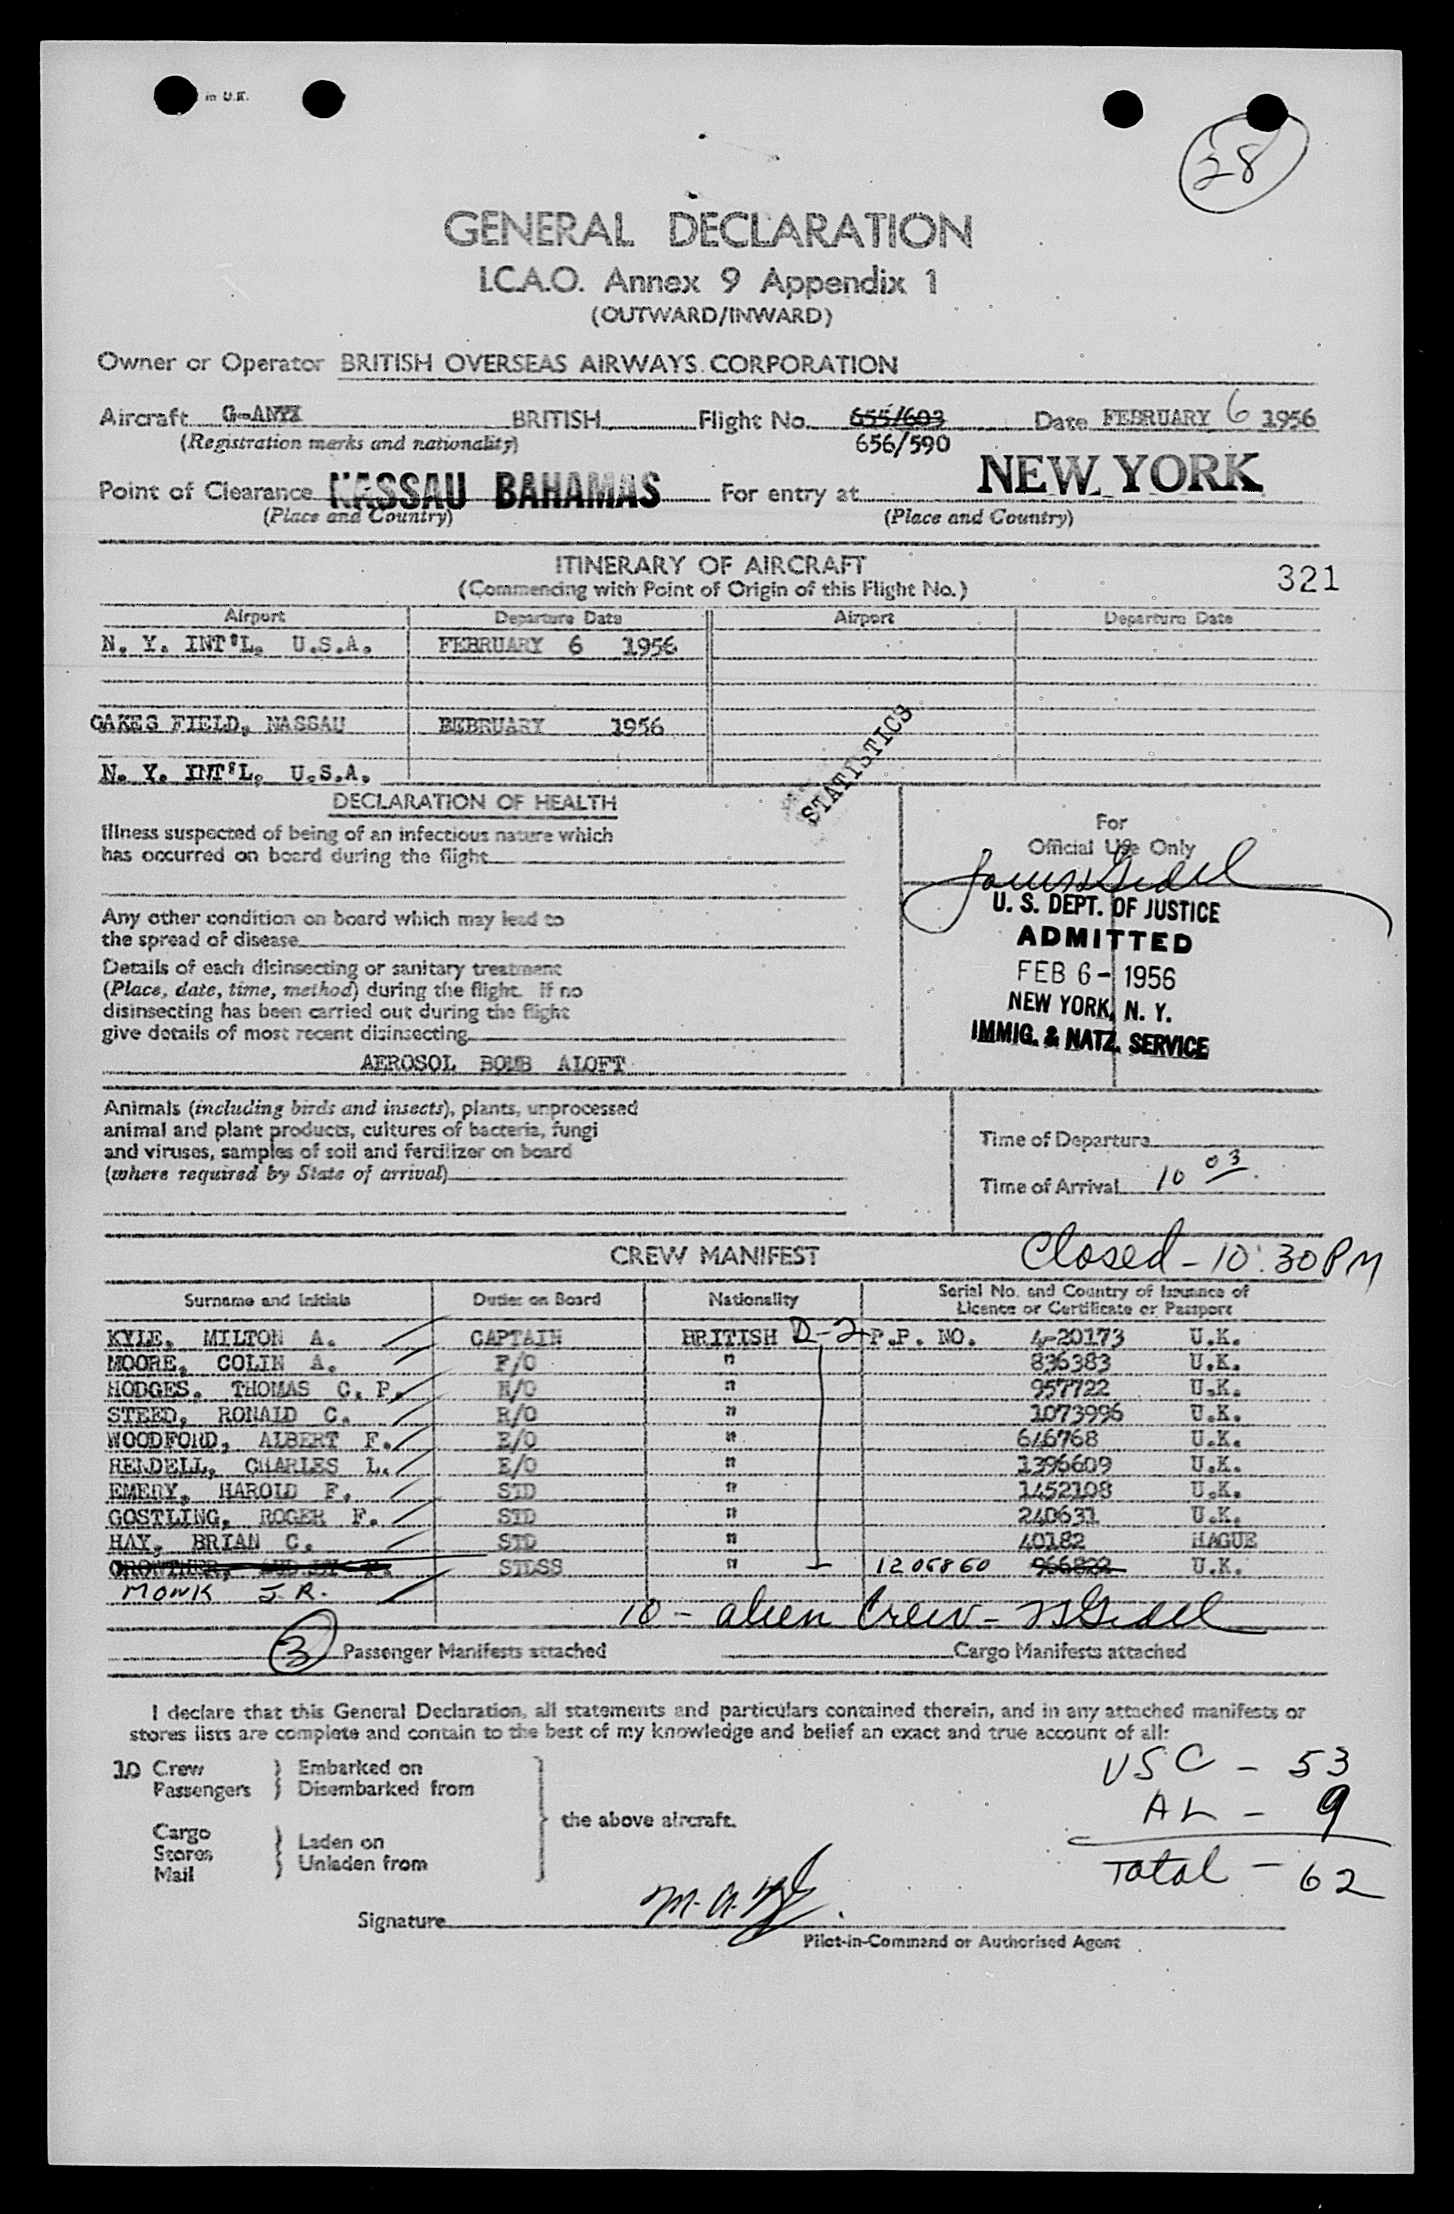 in U.K.
28
GENERAL DECLARATION
I.C.A.O. Annex 9 Appendix 1
(OUTWARD/INWARD)
Owner or Operator BRITISH OVERSEAS AIRWAYS CORPORATION
Aircraft G-ANYX BRITISH Flight No. 655/603 Date FEBRUARY 6 1956
(Registration marks and nationality) 656/590
Point of Clearance NASSAU BAHAMAS For entry at NEW YORK
(Place and Country) (Place and Country)
ITINERARY OF AIRCRAFT
(Commencing with Point of Origin of this Flight No.) 321
Airport Departure Date Airport Departure Date
N. Y. INT'L. U.S.A. FEBRUARY 6 1956
OAKES FIELD, NASSAU FEBRUARY 1956
N. Y. INT'L. U.S.A.
STATISTICS
DECLARATION OF HEALTH
Illness suspected of being of an infectious nature which
has occurred on board during the flight
Any other condition on board which may lead to
the spread of disease
Details of each disinsecting or sanitary treatment
(Place, date, time, method) during the flight. If no
disinsecting has been carried out during the flight
give details of most recent disinsecting
AEROSOL BOMB ALOFT
For
Official Use Only
U. S. DEPT. OF JUSTICE
ADMITTED
FEB 6 - 1956
NEW YORK, N. Y.
IMMIG. & NATZ. SERVICE
Animals (including birds and insects), plants, unprocessed
animal and plant products, cultures of bacteria, fungi
and viruses, samples of soil and fertilizer on board
(where required by State of arrival)
Time of Departure
Time of Arrival 10 03
CREW MANIFEST Closed - 10:30 PM
Surname and Initials Duties on Board Nationality Serial No. and Country of Issuance of
Licence or Certificate or Passport
KYLE, MILTON A. CAPTAIN BRITISH D-2 P.P. NO. 4-20173 U.K.
MOORE, COLIN A. F/O " 836383 U.K.
HODGES, THOMAS C. P. N/O " 957722 U.K.
STEED, RONALD C. R/O " 1073996 U.K.
WOODFORD, ALBERT F. E/O " 646768 U.K.
RENDELL, CHARLES L. E/O " 1396609 U.K.
EMERY, HAROLD F. STD " 1452108 U.K.
GOSTLING, ROGER F. STD " 240631 U.K.
HAY, BRIAN C. STD " 40182 HAGUE
CROWTHER, STDSS " 1206860 966822 U.K.
MONK J. R.
10 - alien Crew -
3 Passenger Manifests attached Cargo Manifests attached
I declare that this General Declaration, all statements and particulars contained therein, and in any attached manifests or
stores lists are complete and contain to the best of my knowledge and belief an exact and true account of all:
10 Crew Embarked on
Passengers Disembarked from
the above aircraft.
Cargo Laden on
Stores Unladen from
Mail
USC - 53
AL - 9
Total - 62
Signature
Pilot-in-Command or Authorised Agent